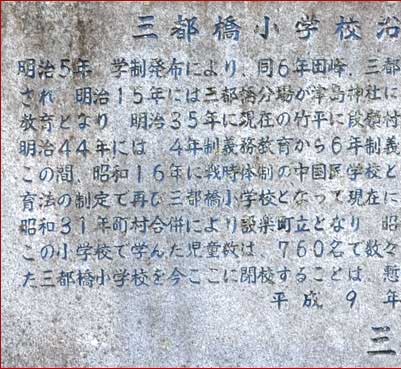 三都橋小学校沿
明治5年 学制発布により、同6年田峰、三都
され 明治15年には三都橋分場が津島神社に
教育となり 明治35年に現在の竹平に段嶺村
明治44年には 4年制義務教育から6年制義
この間、昭和16年に戦時体制の中国民学校と
育法の制定で再び三都橋小学校となって現在に
昭和31年町村合併により設楽町立となり 昭
この小学校で学んだ児童数は 760名で数々
た三都橋小学校を今ここに閉校することは、慙
平成9年
三